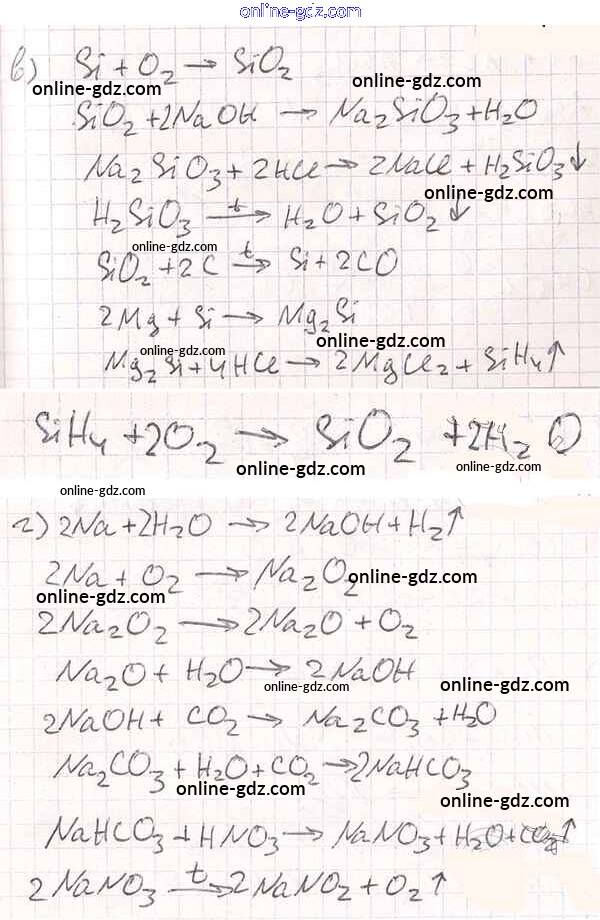 online-gdz.com
в) Si + O₂ → SiO₂
online-gdz.com online-gdz.com
SiO₂ + 2NaOH → Na₂SiO₃ + H₂O
Na₂SiO₃ + 2HCl → 2NaCl + H₂SiO₃↓
online-gdz.com
H₂SiO₃ —t→ H₂O + SiO₂↓
online-gdz.com
SiO₂ + 2C —t→ Si + 2CO
2Mg + Si → Mg₂Si
online-gdz.com online-gdz.com
Mg₂Si + 4HCl → 2MgCl₂ + SiH₄↑
SiH₄ + 2O₂ → SiO₂ + 2H₂O
online-gdz.com online-gdz.com
online-gdz.com
г) 2Na + 2H₂O → 2NaOH + H₂↑
2Na + O₂ → Na₂O₂
online-gdz.com
online-gdz.com
2Na₂O₂ → 2Na₂O + O₂
Na₂O + H₂O → 2NaOH
online-gdz.com online-gdz.com
2NaOH + CO₂ → Na₂CO₃ + H₂O
Na₂CO₃ + H₂O + CO₂ → 2NaHCO₃
online-gdz.com
online-gdz.com
NaHCO₃ + HNO₃ → NaNO₃ + H₂O + CO₂↑
2NaNO₃ —t→ 2NaNO₂ + O₂↑